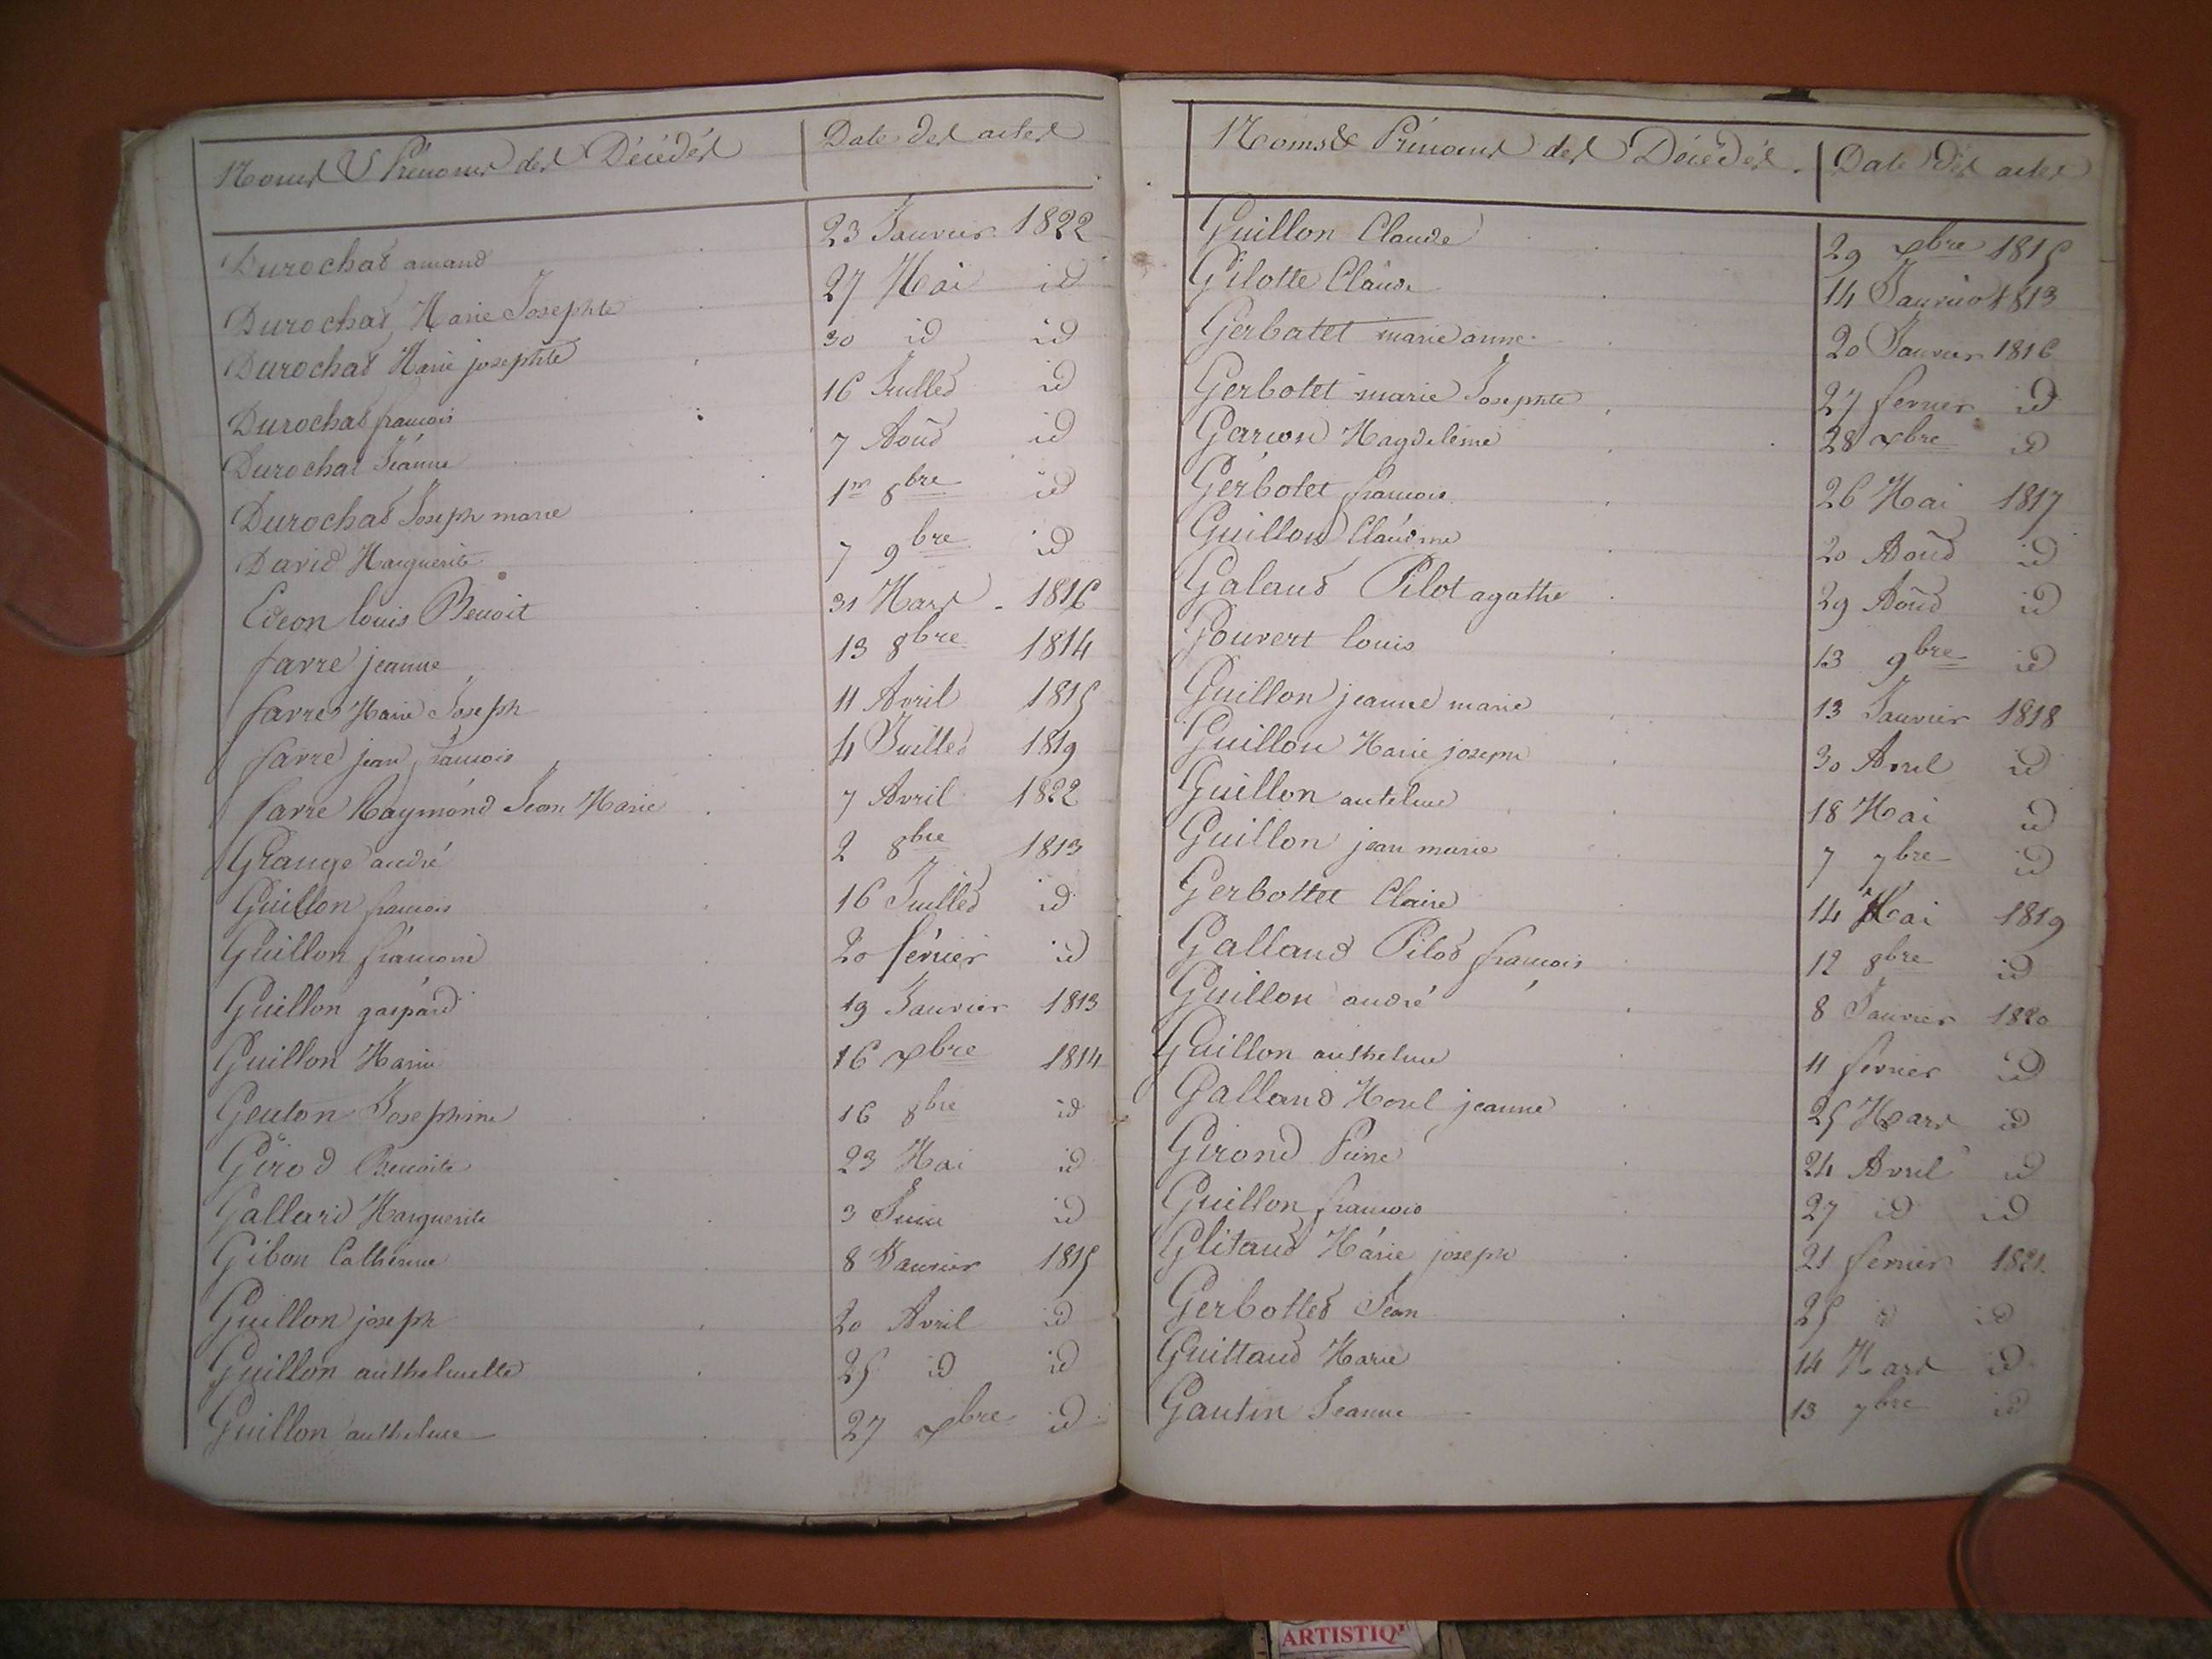 Noms & Prénoms des Décédés | Date des actes
Durochat amand 23 Janvier 1822
Durochat Marie Josephte 27 Mai id
Durochat Marie josephte 30 id id
Durochat francois 16 Juillet id
Durochat Jeanne 7 Aout id
Durochat Joseph marie 1er 8bre id
David Marguerite 7 9bre id
Edeon louis Benoit 31 Mars 1816
farre jeanne 13 8bre 1814
farre Marie Joseph 11 Avril 1815
farre jean francois 4 Juillet 1819
farre Raymond Jean Marie 7 Avril 1822
Grange andré 2 8bre 1813
Guillon francois 16 Juillet id
Guillon francoise 20 février id
Guillon gaspard 19 Janvier 1813
Guillon Marie 16 xbre 1814
Genton Josephine 16 8bre id
Girod Benoite 23 Mai id
Gallard Marguerite 3 Juin id
Gibon Catherine 8 Janvier 1815
Guillon joseph 20 Avril id
Guillon anthelmette 25 id id
Guillon anthelme 27 xbre id
Noms & Prénoms des Décédés. | Date des actes
Guillon Claude 29 xbre 1815
Gilotte Claude 14 Janvier 1813
Gerbatet marie anne 20 Janvier 1816
Gerbotet marie Josephte 27 fevrier id
Garcon Magdeleine 28 xbre id
Gerbotet francois 26 Mai 1817
Guillon Claudine 20 Aout id
Galand Pilot agathe 29 Aout id
Gouvert louis 13 9bre id
Guillon jeanne marie 13 Janvier 1818
Guillon Marie joseph 30 Avril id
Guillon antelme 18 Mai id
Guillon jean marie 7 7bre id
Gerbottet Claire 14 Mai 1819
Galland Pilod francois 12 8bre id
Guillon andré 8 Janvier 1820
Guillon anthelme 11 fevrier id
Galland Morel jeanne 25 Mars id
Girond 24 Avril id
Guillon francois 27 id id
Glitaud Marie joseph 21 fevrier 1821
Gerbottet Jean 25 id id
Guittaud Marie 14 Mars id
Gautin Jeanne 13 7bre id
ARTISTIQ